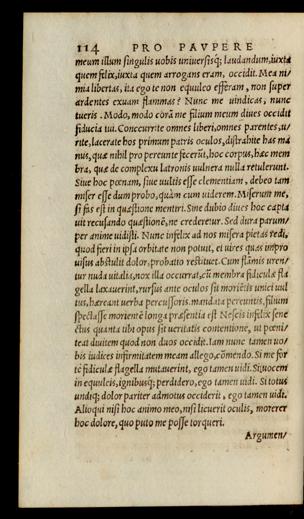 114 PRO PAVPERE
meum illum singulis uobis uniuersisq; laudandum, iuxta
quem felix, iuxta quem arrogans eram, occidit. Mea ni/
mia libertas, ita ego te non equuleo efferam, non super
ardentes exuam flammas? Nunc me uindicas, nunc
tueris. Modo, modo corā me filium meum diues occidit
fiducia tui. Concurrite omnes liberi, omnes parentes, u/
rite, lacerate hos primum patris oculos, distrahite has ma
nus, quæ nihil pro pereunte fecerūt, hoc corpus, hæc mem
bra, quæ de complexu latronis uulnera nulla retulerunt.
Siue hoc pœnam, siue uultis esse clementiam, debeo tam
miser esse dum probo, quàm cum uiderem. Miserum me,
si fas est in quæstione mentiri. Sine dubio diues hoc capta
uit recusando quæstionē, ne crederetur. Sed dura parum/
per anime uidisti. Nunc infelix ad nos misera pietas redi,
quod fieri in ipsa orbitate non potuit, et uires quas impro
uisus abstulit dolor, probatio restituet. Cum flāmis uren/
tur nuda uitalia, nox illa occurrat, cū membra fidiculæ fla
gella laxauerint, rursus ante oculos sit moriētis unici uul
tus, hæreant uerba percussoris. mandata pereuntis, filium
spectasse morientē longa præsentia est Nescis infelix sene
ctus quanta tibi opus sit ueritatis contentione, ut pœni/
teat diuitem quod non duos occidit. Iam nunc tamen uo/
bis iudices infirmitatem meam allego, cōmendo. Si me for
tè fidiculæ flagella mutauerint, ego tamen uidi. Si uocem
in equuleis, ignibusq; perdidero, ego tamen uidi. Si totus
undiq; dolor pariter admotus occiderit, ego tamen uidi.
Alioqui nisi hoc animo meo, nisi licuerit oculis, morerer
hoc dolore, quo puto me posse torqueri.
Argumen/